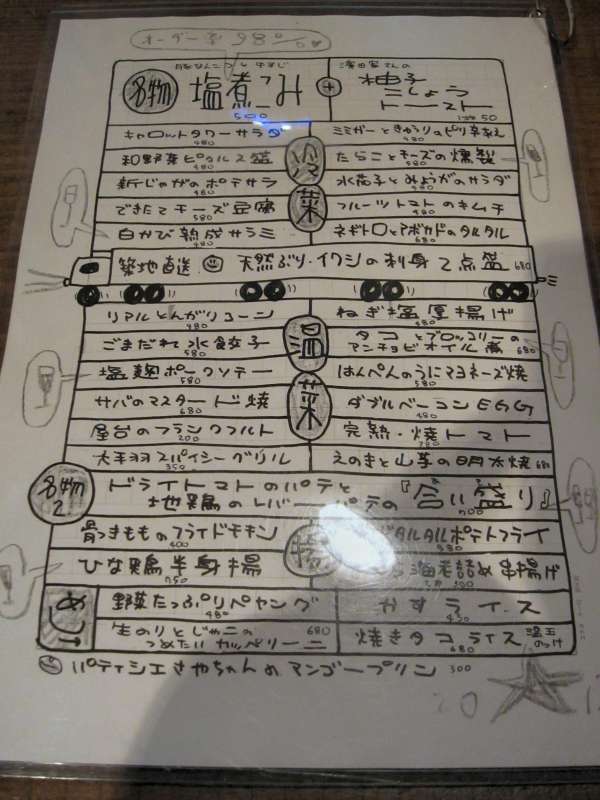 オーダー率98%
豚なんこつ と 牛すじ
名物 塩煮こみ 500
+
濱田家さんの
柚子
こしょう
トースト
50
キャロットタワーサラダ 480
ミミガーときゅうりのピリ辛和え 480
和野菜ピクルス盛 480
たらことチーズの燻製 580
新じゃがのポテサラ 480
水茄子とみょうがのサラダ
できたてチーズ豆腐 580
フルーツトマトのキムチ 480
白かび熟成サラミ 580
ネギトロとアボカドのタルタル 680
冷菜
築地直送 天然ぶり・イワシの刺身2点盛 680
リアルとんがりコーン 480
ねぎ塩厚揚げ 480
ごまだれ水餃子 580
タコとブロッコリーの
アンチョビオイル煮 680
塩麹ポークソテー 580
はんぺんのうにマヨネーズ焼 580
サバのマスタード焼 680
ダブルベーコンEGG 480
屋台のフランクフルト 200
完熟・焼トマト 380
大手羽スパイシーグリル 350
えのきと山芋の明太焼 680
温菜
名物2
ドライトマトのパテと
地鶏のレバーパテの『合い盛り』 700
骨つきもものフライドチキン 400
タルタルポテトフライ 580
ひな鶏半身揚 750
海老詰め串揚げ
揚
めし
野菜たっぷりペヤング 480
かすライス 450
生のりとじゃこの
つめたいカッペリーニ 680
焼きタコライス 温玉のっけ 680
パティシエさやちゃんのマンゴープリン 300